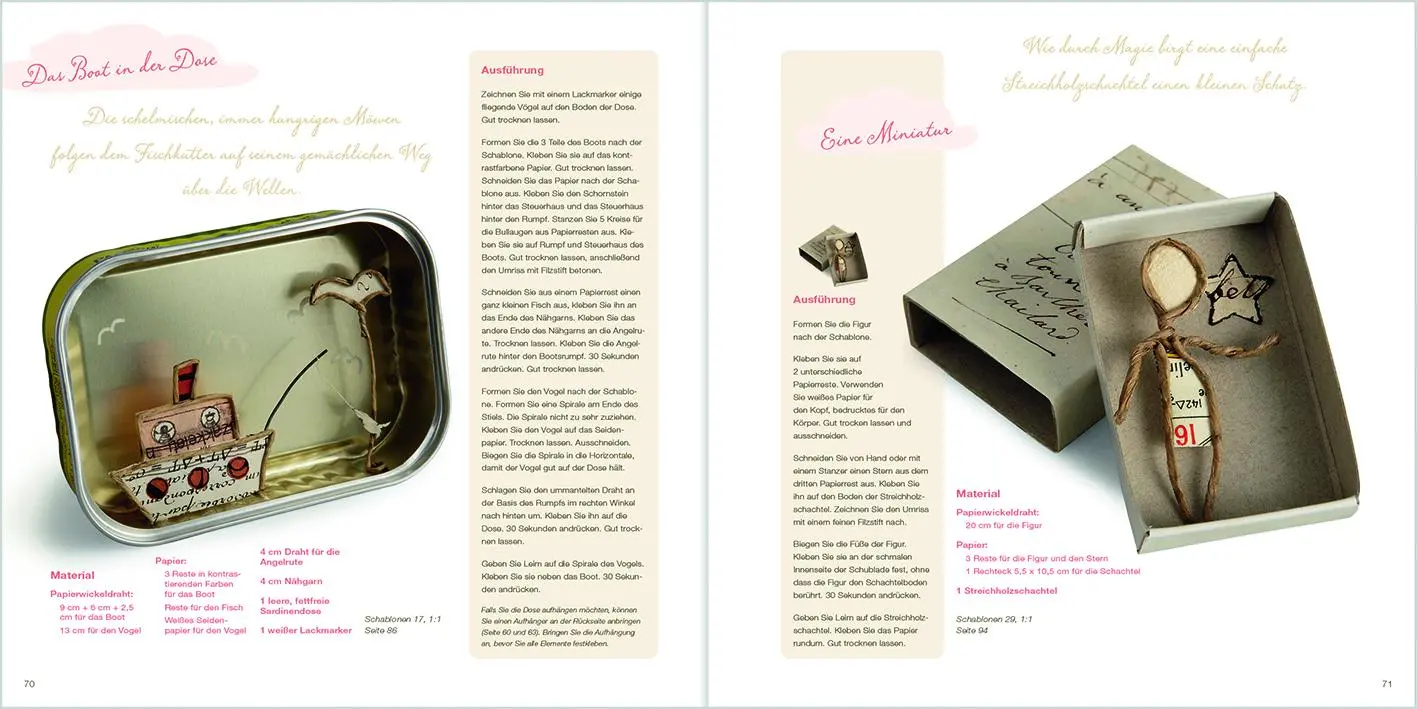 Das Boot in der Dose
Die schelmischen, immer hungrigen Möwen
folgen dem Fischkutter auf seinem gemächlichen Weg
über die Wellen.
Material
Papierwickeldraht:
9 cm + 6 cm + 2,5
cm für das Boot
13 cm für den Vogel
Papier:
3 Reste in kontras-
tierenden Farben
für das Boot
Reste für den Fisch
Weißes Seiden-
papier für den Vogel
4 cm Draht für die
Angelrute
4 cm Nähgarn
1 leere, fettfreie
Sardinendose
1 weißer Lackmarker
Schablonen 17, 1:1
Seite 86
Ausführung
Zeichnen Sie mit einem Lackmarker einige
fliegende Vögel auf den Boden der Dose.
Gut trocknen lassen.
Formen Sie die 3 Teile des Boots nach der
Schablone. Kleben Sie sie auf das kont-
rastfarbene Papier. Gut trocknen lassen.
Schneiden Sie das Papier nach der Scha-
blone aus. Kleben Sie den Schornstein
hinter das Steuerhaus und das Steuerhaus
hinter den Rumpf. Stanzen Sie 5 Kreise für
die Bullaugen aus Papierresten aus. Kle-
ben Sie sie auf Rumpf und Steuerhaus des
Boots. Gut trocknen lassen, anschließend
den Umriss mit Filzstift betonen.
Schneiden Sie aus einem Papierrest einen
ganz kleinen Fisch aus, kleben Sie ihn an
das Ende des Nähgarns. Kleben Sie das
andere Ende des Nähgarns an die Angelru-
te. Trocknen lassen. Kleben Sie die Angel-
rute hinter den Bootsrumpf. 30 Sekunden
andrücken. Gut trocknen lassen.
Formen Sie den Vogel nach der Schablo-
ne. Formen Sie eine Spirale am Ende des
Stiels. Die Spirale nicht zu sehr zuziehen.
Kleben Sie den Vogel auf das Seiden-
papier. Trocknen lassen. Ausschneiden.
Biegen Sie die Spirale in die Horizontale,
damit der Vogel gut auf der Dose hält.
Schlagen Sie den ummantelten Draht an
der Basis des Rumpfs im rechten Winkel
nach hinten um. Kleben Sie ihn auf die
Dose. 30 Sekunden andrücken. Gut trock-
nen lassen.
Geben Sie Leim auf die Spirale des Vogels.
Kleben Sie sie neben das Boot. 30 Sekun-
den andrücken.
Falls Sie die Dose aufhängen möchten, können
Sie einen Aufhänger an der Rückseite anbringen
(Seite 60 und 63). Bringen Sie die Aufhängung
an, bevor Sie alle Elemente festkleben.
70
Wie durch Magie birgt eine einfache
Streichholzschachtel einen kleinen Schatz.
Eine Miniatur
Ausführung
Formen Sie die Figur
nach der Schablone.
Kleben Sie sie auf
2 unterschiedliche
Papierreste. Verwenden
Sie weißes Papier für
den Kopf, bedrucktes für den
Körper. Gut trocken lassen und
ausschneiden.
Schneiden Sie von Hand oder mit
einem Stanzer einen Stern aus dem
dritten Papierrest aus. Kleben Sie
ihn auf den Boden der Streichholz-
schachtel. Zeichnen Sie den Umriss
mit einem feinen Filzstift nach.
Biegen Sie die Füße der Figur.
Kleben Sie sie an der schmalen
Innenseite der Schublade fest, ohne
dass die Figur den Schachtelboden
berührt. 30 Sekunden andrücken.
Geben Sie Leim auf die Streichholz-
schachtel. Kleben Sie das Papier
rundum. Gut trocknen lassen.
bet
16
Material
Papierwickeldraht:
20 cm für die Figur
Papier:
3 Reste für die Figur und den Stern
1 Rechteck 5,5 x 10,5 cm für die Schachtel
1 Streichholzschachtel
Schablonen 29, 1:1
Seite 94
71